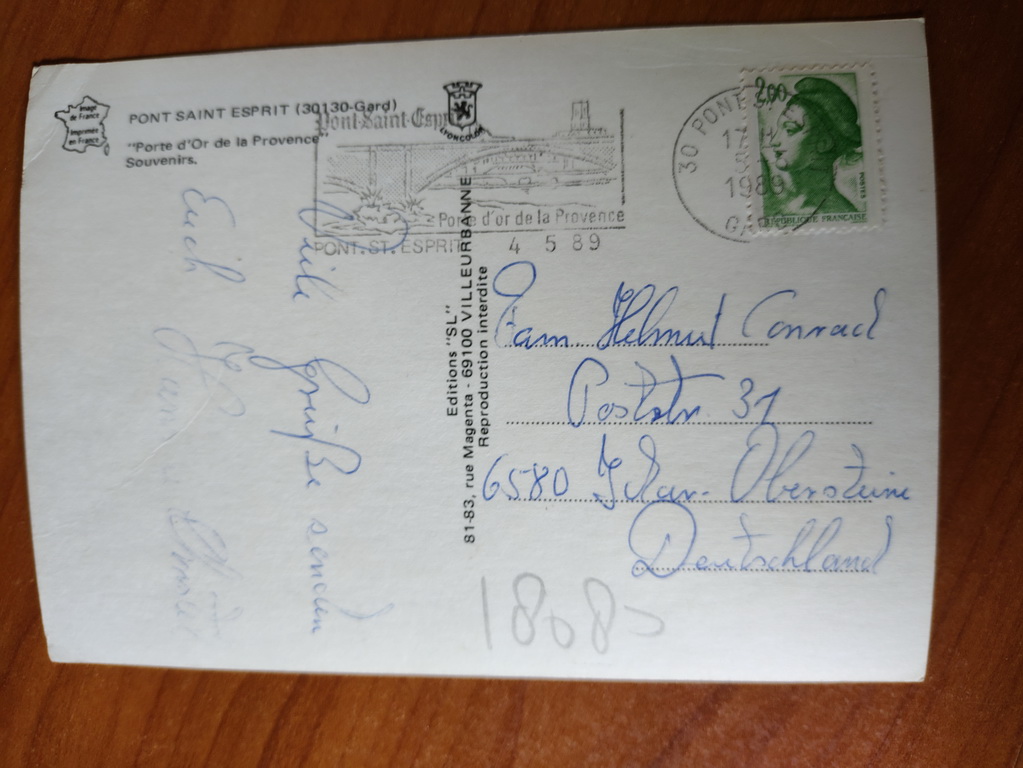 Image
de France
Imprimée
en France
PONT SAINT ESPRIT (30130-Gard)
"Porte d'Or de la Provence"
Souvenirs.
LYONCOLOR
Pont-Saint-Esprit
Porte d'or de la Provence
PONT. ST. ESPRIT 4 5 89
30 PONT
1989
GARD
2,00
POSTES
REPUBLIQUE FRANÇAISE
Editions "SL"
81-83, rue Magenta - 69100 VILLEURBANNE
Reproduction interdite
Viele Grüße senden
Euch
Fam Helmut Conrad
Poststr. 31
6580 Idar-Oberstein
Deutschland